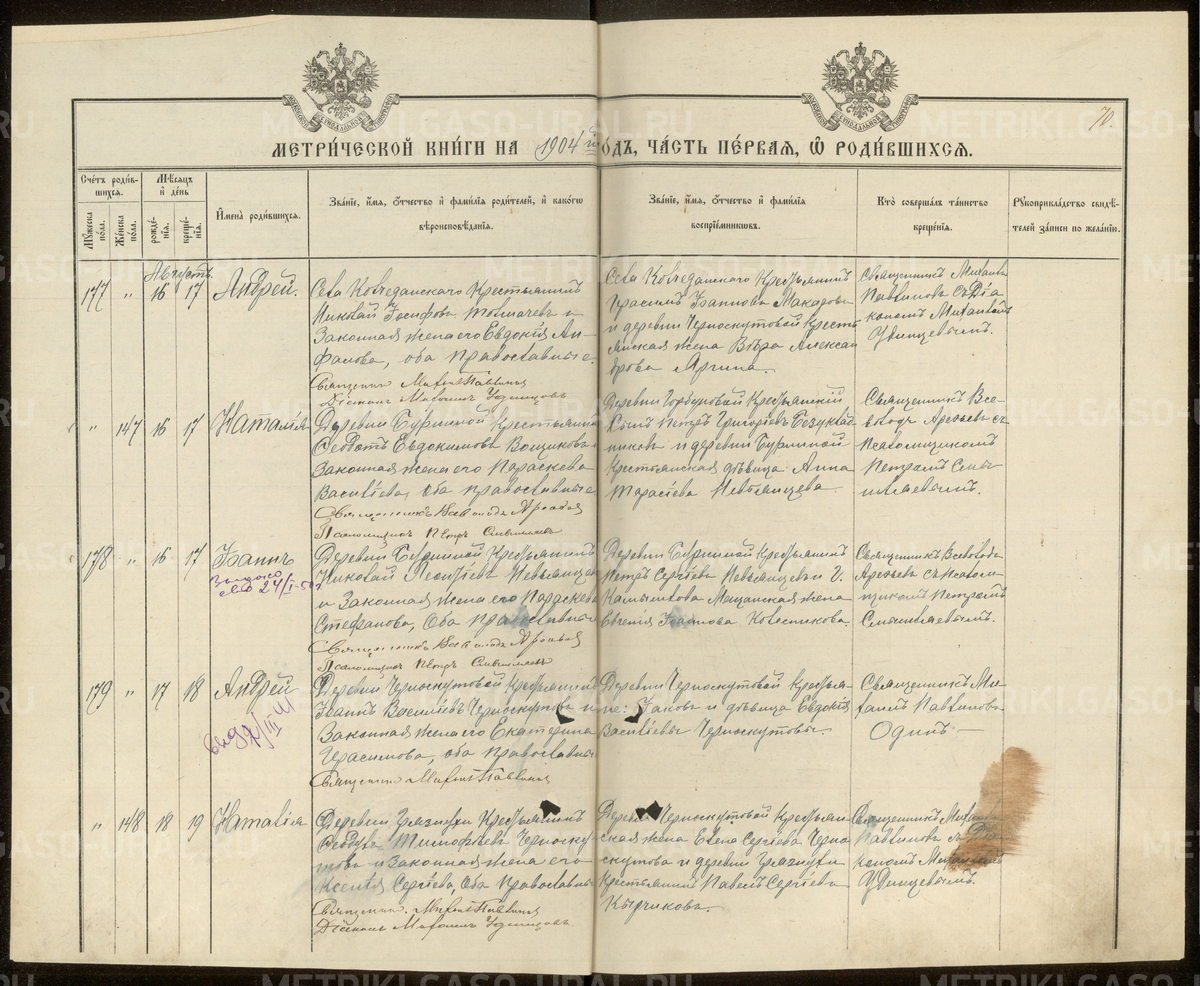 70
МЕТРИ́ЧЕСКОЙ КНИ́ГИ НА 1904 й ГОДЪ, ЧА́СТЬ ПЕ́РВАЯ, Ѿ РОДИ́ВШИХСЯ.
Сче́тъ роди́вшихся.
Му́жеска по́ла.
Же́нска по́ла.
Мѣ́сяцъ и де́нь
рожде́нія.
креще́нія.
И҆мена̀ роди́вшихся.
Зва́ніе, и҆́мя, ѻ҆́тчество и҆ фами́лія роди́телей, и҆ како́гѡ вѣроисповѣ́данія.
Зва́ніе, и҆́мя, ѻ҆́тчество и҆ фами́лія воспріе́мникѡвъ.
Кто̀ соверша́лъ та́инство креще́нія.
Рꙋкоприкла́дство свидѣ́телей за́писи по жела́нію.
Августъ
177 " 16 17 Андрей.
Села Колчеданскаго Крестьянинъ
Николай Іосифовъ Толмачевъ и
Законная жена его Евдокія Ан-
фалова, оба православные.
Священникъ Михаилъ Павлиновъ
Діаконъ Михаилъ Удинцовъ
Села Колчеданскаго Крестьянинъ
Герасимъ Іоанновъ Макаровъ
и деревни Черноскутовой кресть
янская жена Вѣра Алексан
дрова Аргина.
Священникъ Михаилъ
Павлиновъ съ Діа
кономъ Михаиломъ
Удинцевымъ.
" 147 16 17 Наталія
Деревни Бурниной Крестьянинъ
Ѳеодотъ Евдокимовъ Вощиковъ и
Законная жена его Параскева
Василіева, оба православные
Священникъ Всеволодъ Арефьевъ
Псаломщикъ Петръ Смышляевъ
Деревни Горбуновой Крестьянскій
сынъ Петръ Григорьевъ Безуклад
никовъ и деревни Бурниной
Крестьянская дѣвица Анна
Тарасіева Невьянцева.
Священникъ Все-
володъ Арефьевъ съ
Псаломщикомъ
Петромъ Смы
шляевымъ.
178 " 16 17 Іоаннъ
24/I-50 г
Деревни Бурниной Крестьянинъ
Николай Леонтіевъ Невьянцевъ
и Законная жена его Параскева
Стефанова, Оба православные
Священникъ Всеволодъ Арефьевъ
Псаломщикъ Петръ Смышляевъ
Деревни Бурниной Крестьянинъ
Петръ Сергѣевъ Невьянцевъ и г.
Камышлова Мѣщанская жена
Евгенія Іоаннова Колесникова.
Священникъ Всеволодъ
Арефьевъ съ псалом-
щикомъ Петромъ
Смышляевымъ.
179 " 17 18 Андрей
Деревни Черноскутовой Крестьянинъ
Іоаннъ Василіевъ Черноскутовъ и
Законная жена его Екатерина
Герасимова, оба православные
Священникъ Михаилъ Павлиновъ
Деревни Черноскутовой Крестья-
не: Іаковъ и дѣвица Евдокія
Василіевы Черноскутовы.
Священникъ Ми-
хаилъ Павлиновъ
Одинъ.
" 148 18 19 Наталія
Деревни Грязнухи Крестьянинъ
Ѳеодулъ Тимофѣевъ Черноску
товъ и законная жена его
Ксенія Сергіева, Оба Православные
Священникъ Михаилъ Павлиновъ
Діаконъ Михаилъ Удинцовъ
Деревни Черноскутовой Крестьян
ская жена Елена Сергіева Черно
скутова и деревни Грязнухи
Крестьянинъ Павелъ Сергіевъ
Кырчиковъ.
Священникъ Михаилъ
Павлиновъ съ Діа
кономъ Михаиломъ
Удинцевымъ.
METRIKI.GASO-URAL.RU